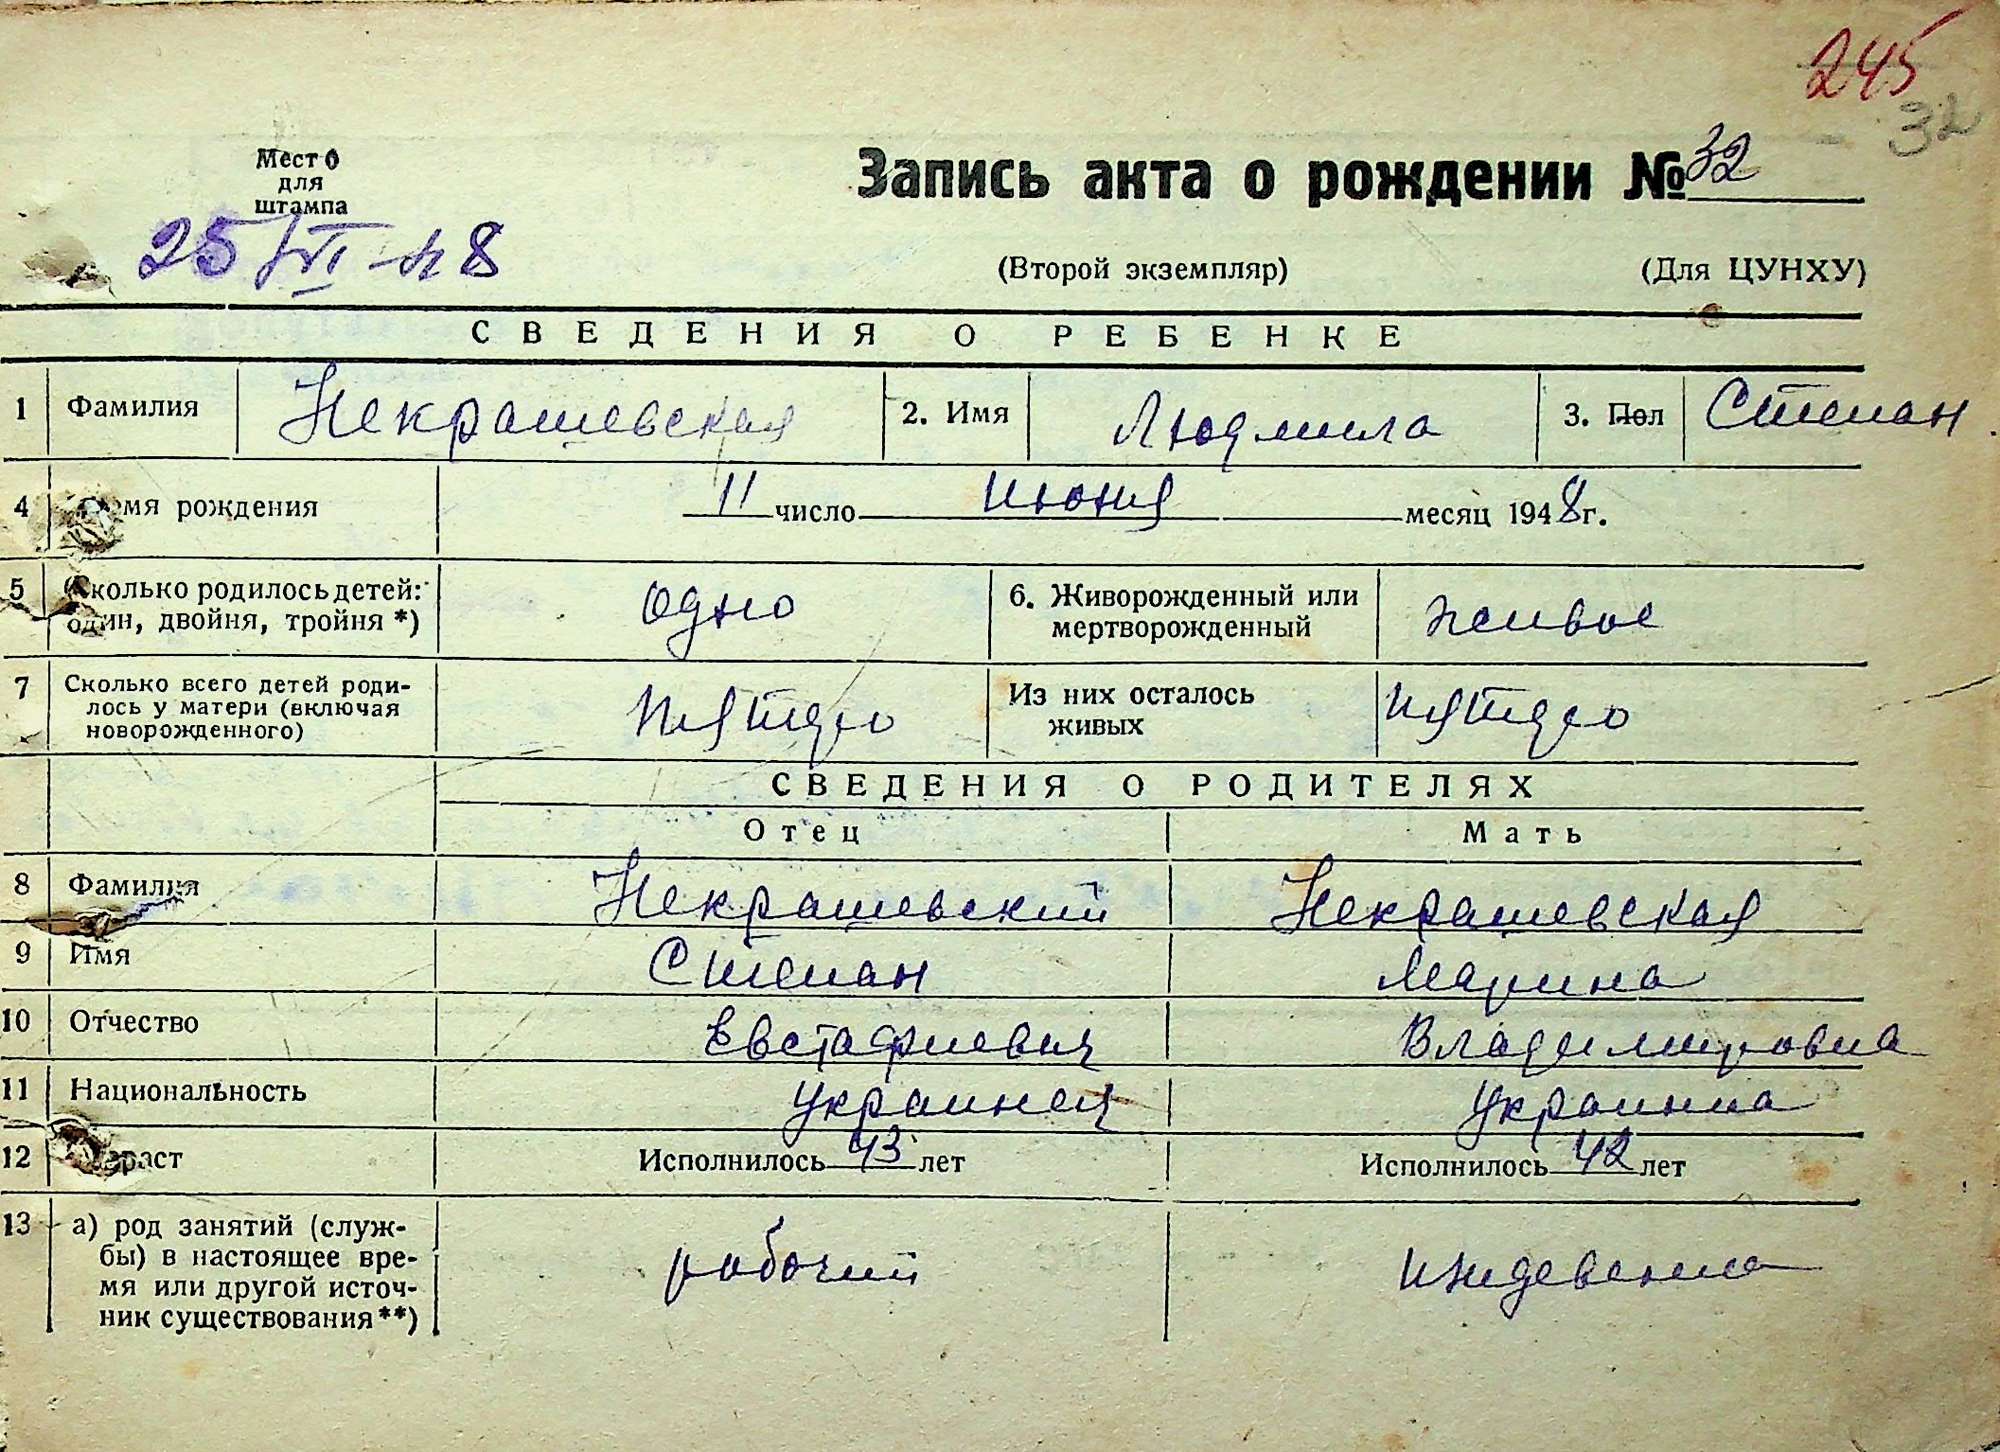 245
32
Место
для
штампа
25/VI-48
Запись акта о рождении № 32
(Второй экземпляр) (Для ЦУНХУ)
СВЕДЕНИЯ О РЕБЕНКЕ
1 Фамилия Некрашевская 2. Имя Людмила 3. Пол Степан
4 Время рождения 11 число июня месяц 1948 г.
5 Сколько родилось детей: один, двойня, тройня *) одно 6. Живорожденный или мертворожденный живое
7 Сколько всего детей роди-
лось у матери (включая
новорожденного) пятеро Из них осталось живых пятеро
СВЕДЕНИЯ О РОДИТЕЛЯХ
Отец Мать
8 Фамилия Некрашевский Некрашевская
9 Имя Степан Марина
10 Отчество Евстафиевич Владимировна
11 Национальность украинец украинка
12 Возраст Исполнилось 43 лет Исполнилось 42 лет
13 а) род занятий (служ-
бы) в настоящее вре-
мя или другой источ-
ник существования **) рабочий иждевенка